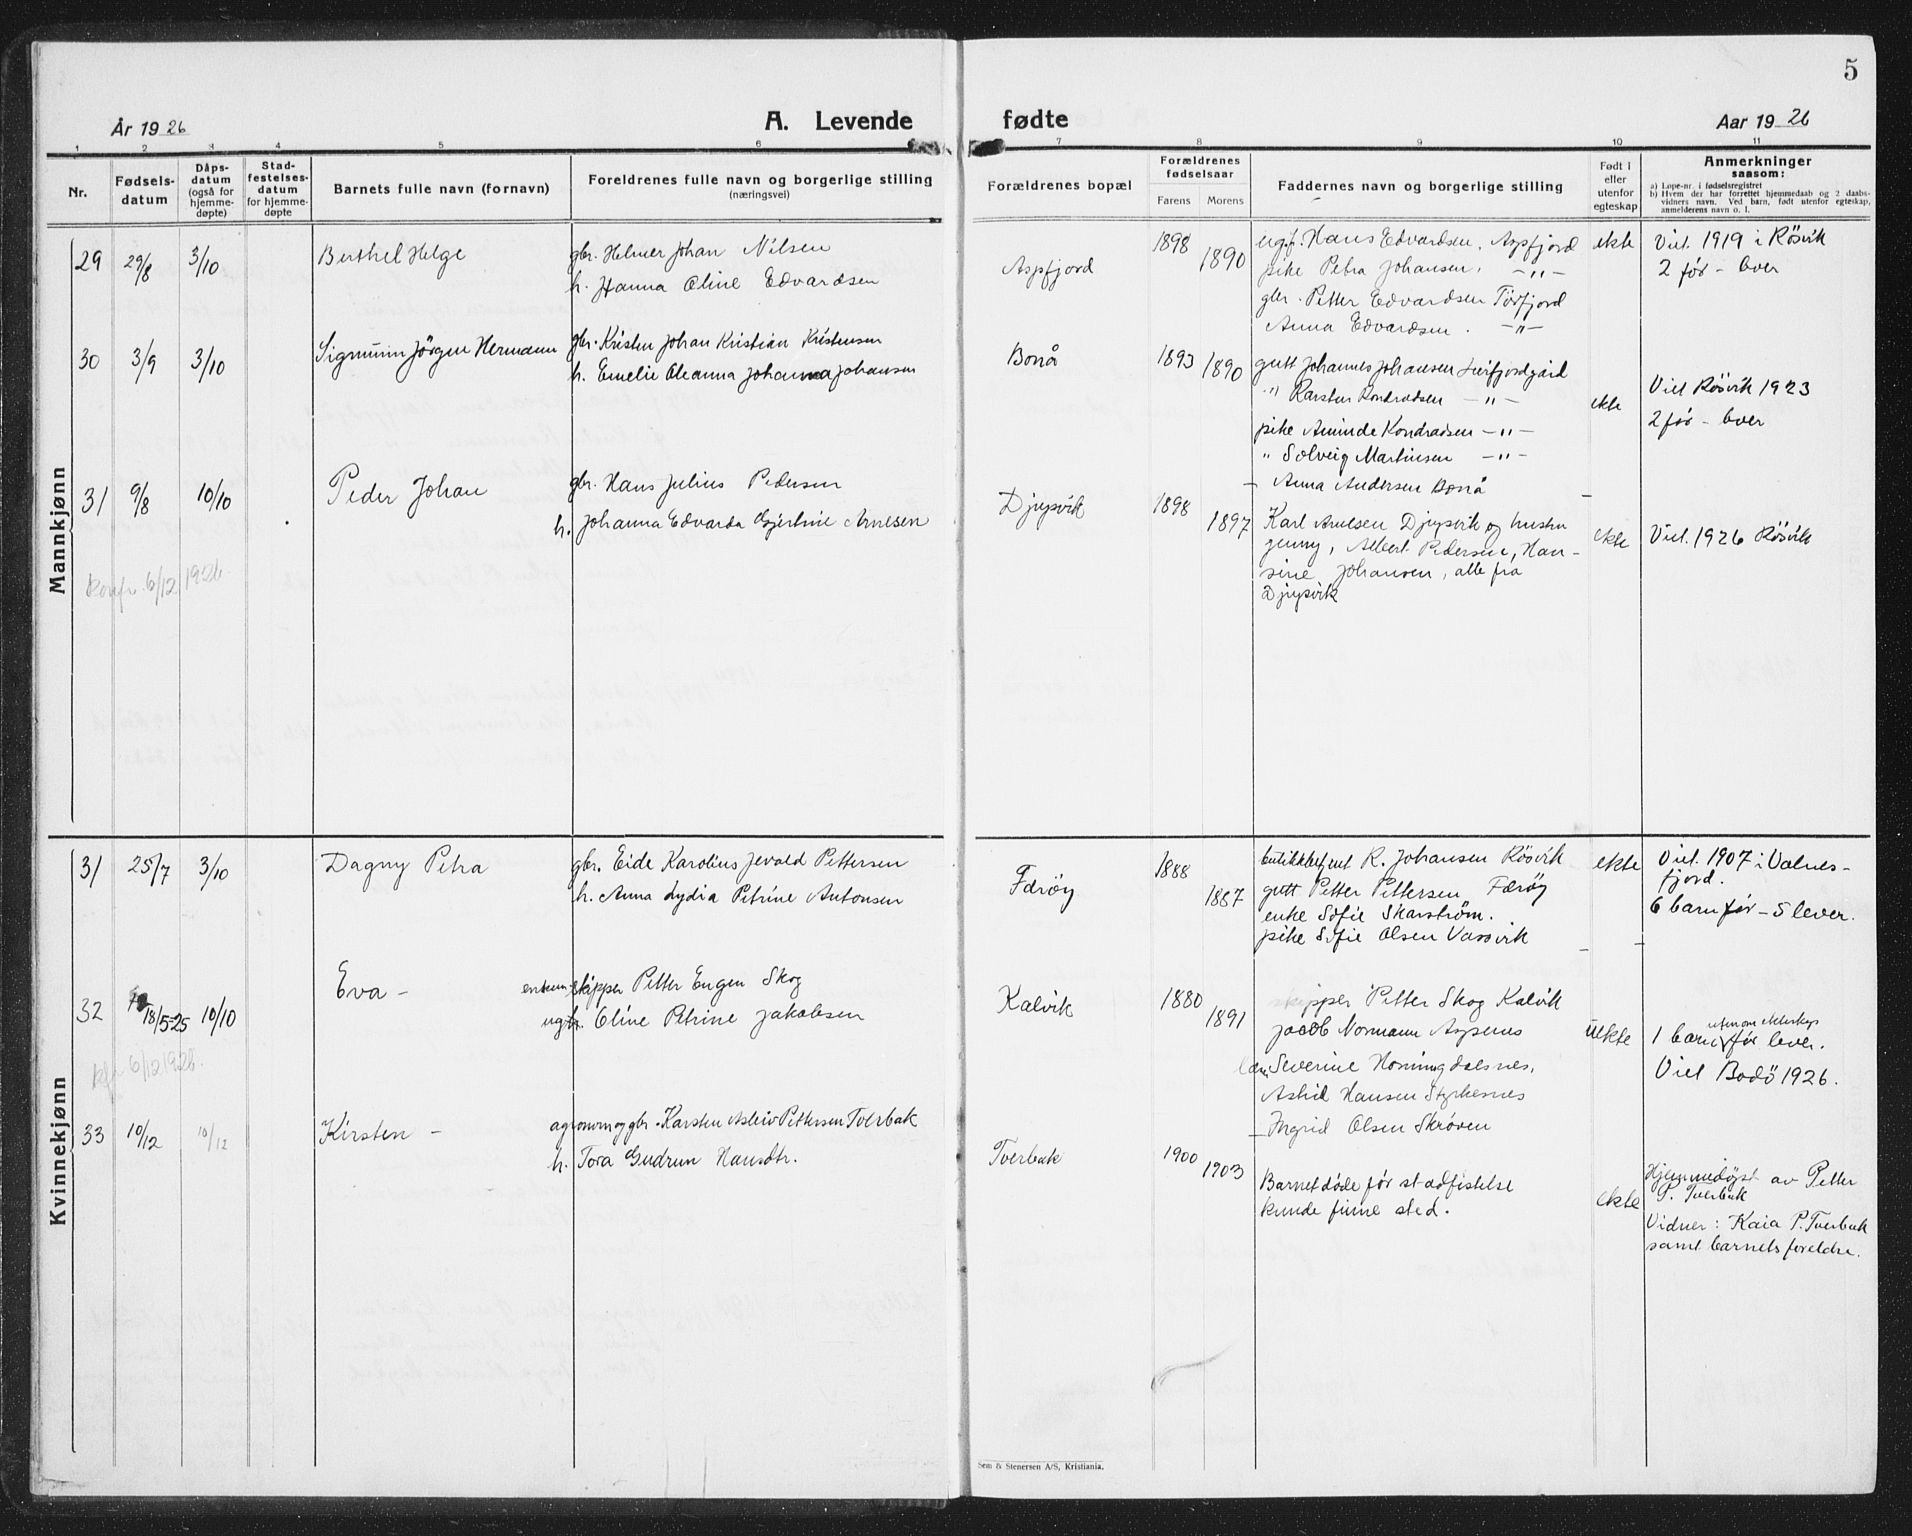 5
År 1926
A. Levende
fødte
Aar 1926
1 2 3 4 5 6 7 8 9 10 11
Nr.
Fødsels-
datum
Dåps-
datum
(også for
hjemme-
døpte)
Stad-
festelses-
datum
for hjemme-
døpte
Barnets fulle navn (fornavn)
Foreldrenes fulle navn og borgerlige stilling
(næringsvei)
Forældrenes bopæl
Forældrenes
fødselsaar
Farens Morens
Faddernes navn og borgerlige stilling
Født i
eller
utenfor
egteskap
Anmerkninger
saasom:
a) Løpe-nr. i fødselsregistret
b) Hvem der har forrettet hjemmedaab og 2 daabs-
vidners navn. Ved barn, født utenfor egteskap,
anmelderens navn o. l.
Mannkjønn
29 29/8 3/10 Berthel Helge
gbr. Helmer Johan Nilsen
h. Hanna Oline Edvardsen
Aspfjord
1898 1890
ug.f. Hans Edvardsen, Aspfjord
pike Petra Johansen, —"—
gbr. Petter Edvardsen Törfjord
Anna Edvardsen. —"—
ekte
Viet. 1919 i Rösvik
2 før - lever
30 3/9 3/10 Sigmunn Jörgen Hermann
gbr. Kristen Johan Kristian Kristensen
h. Emelie Oleanna Johanna Johansen
Bonå
1893 1890
gutt Johannes Johansen Leirfjordgård
" Karsten Kondradsen —"—
pike Aminde Kondradsen —"—
" Solveig Martinsen —"—
Anna Andersen Bonå
ekte
Viet Rösvik 1923
2 før - lever
31 9/8 10/10 Peder Johan
gbr. Hans Julius Pedersen
h. Johanna Edvarda Gjertine Arnesen
Djupvik
1898 1897
Karl Arnesen Djupvik og hustru
Jenny, Albert Pedersen, Han-
sine Johansen, alle fra
Djupvik
ekte
Viet. 1926 Rösvik
Konfr. 6/12 1926.
Kvinnekjønn
31 25/7 3/10 Dagny Petra
gbr. Eide Karolius Jevald Pettersen
h. Anna Lydia Petrine Antonsen
Færöy
1888 1887
butikkbetjent R. Johansen Rösvik
gutt Petter Pettersen Færöy
enke Sofie Skarström.
pike Sofie Olsen Vassvik
ekte
Viet. 1907 i Valnes-
fjord.
6 barn før - 5 lever.
32 18/5-25 10/10 Eva -
enkem. skipper Petter Eugen Skog
ug Oline Petrine Jakobsen
Kalvik
1880 1891
skipper Petter Skog Kalvik
Jacob Normann Aspenes
Severine Horningdalsnes,
Astrid Hansen Styrkesnes
Ingrid Olsen Skröven
uekte
utenom ekteskap
1 barn før lever.
Viet Bodö 1926.
kfr 6/12 1926.
33 10/12 10/12 Kirsten -
agronom og gbr. Karsten Asleiv Pettersen Tverbak
h. Tora Gudrun Hansdtr.
Tverbak
1900 1903
Barnet døde før stadfestelse
kunde finne sted.
ekte
Hjemmedöpt av Petter
P. Tverbak
Vidner: Kaia P. Tverbak
samt barnets foreldre.
Sem & Stenersen A/S, Kristiania.